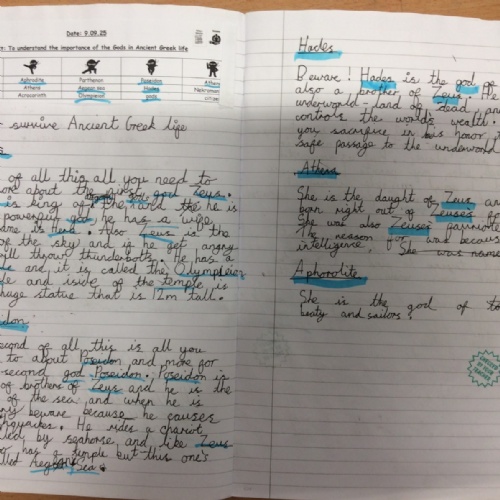 Date: 9.09.25
To understand the importance of the Gods in Ancient Greek life
Aphrodite Parthenon Poseidon Athens
Athena Aegean sea Hades Nekromanteion
Acrocorinth Olympieion gods
survive Ancient Greek life
of all this all you need to
more about the first god Zeus.
is king of the he is
powerful god he has a wife
name is Hera. Also Zeus is the
of the sky and is he get angry
will throw thunderbolts. He has a
and it is called the Olympieion
and iside of the temple is
huge statue that is 12m tall.
second of all this is all you
to about Poseidon and more for
second god Poseidon. Poseidon is
of brothers of Zeus and he is the
of the sea and when he is
beware because he causes
. He rides a chariot
by seahorse, and like Zeus
has a temple but this one's
called Aegean Sea
Hades
Beware! Hades is the god of
also a brother of Zeus. He
underworld - land of dead, and
controls the world's wealth.
you sacrifice in his honor,
safe passage to the underworld
Athena
She is the daught of Zeus and
born right out of Zeuses
She was also Zeuses
The reason for was because
intelligence. She was name
Aphorodite
She is the god of
beaty and sailors.